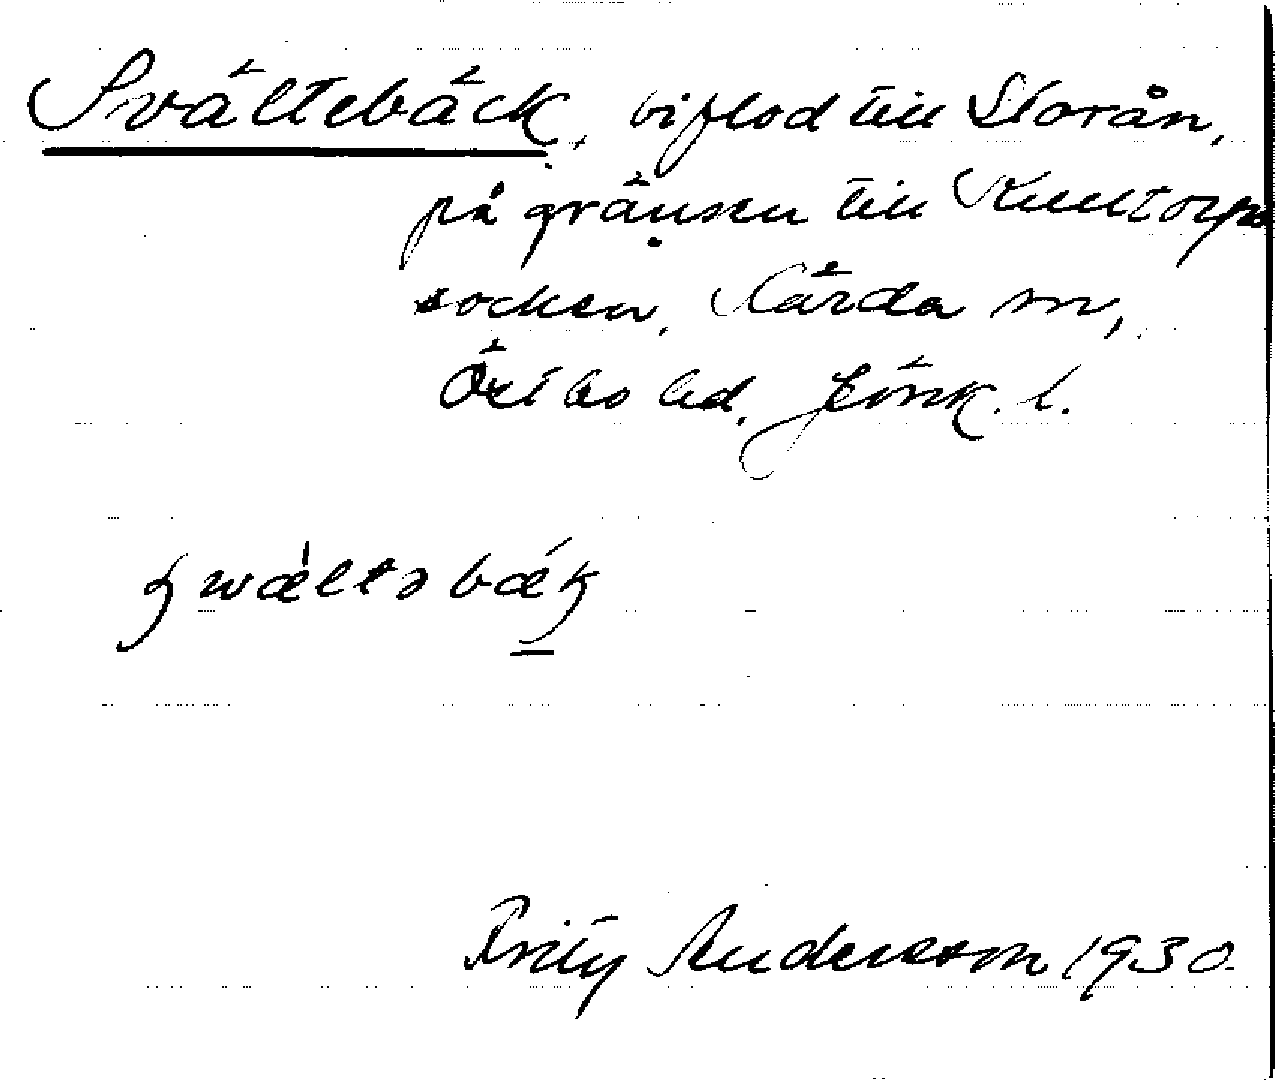 Svältebäck, biflod till Storån,
på gränsen till Kulltorps
socken, Kärda sn,
Östbo hd. Jönk. l.
Fritz Andersson 1930.